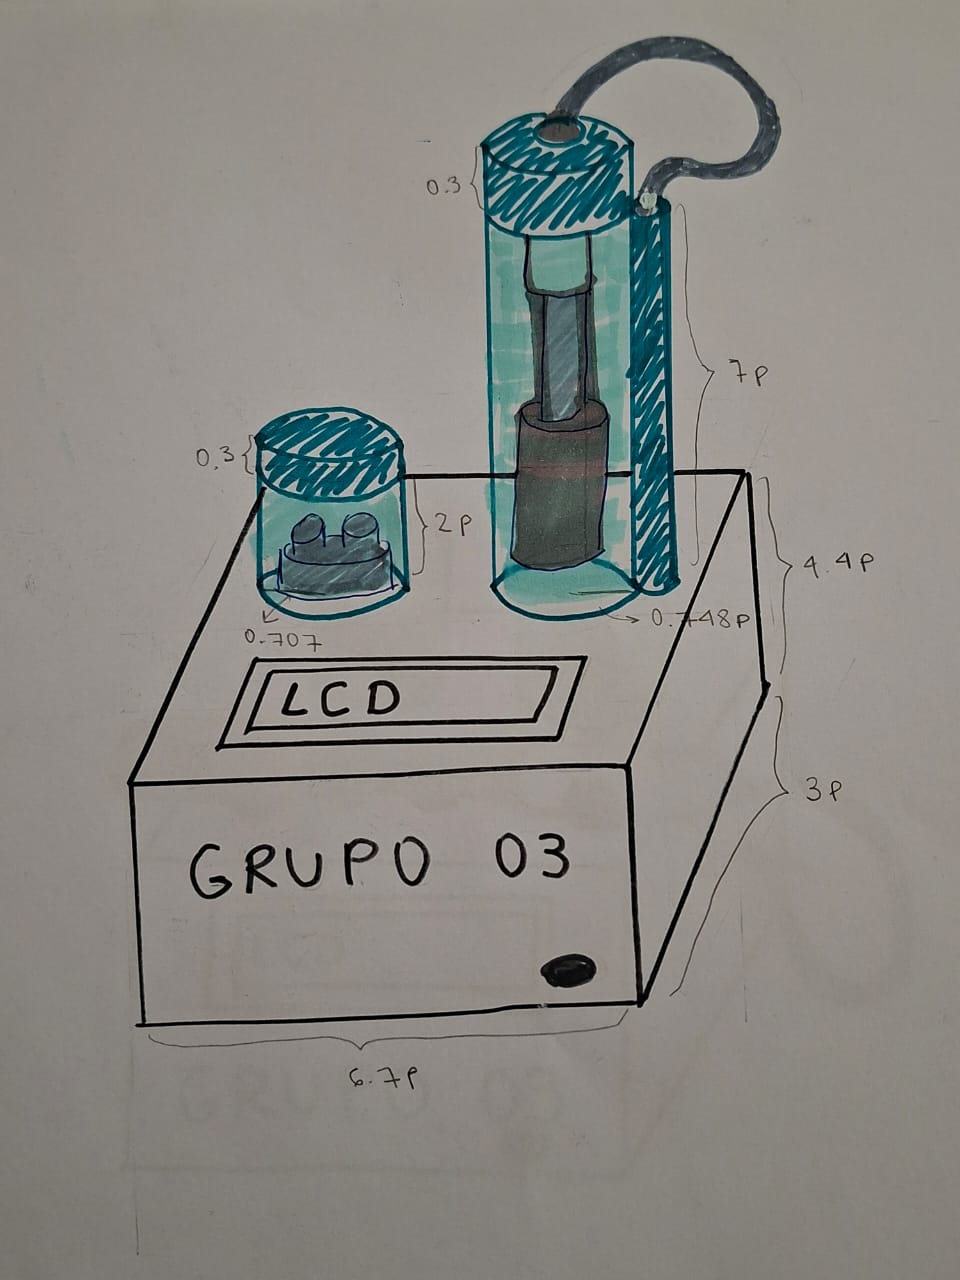 0.3
7P
0.3
2P
4.4P
0.707
0.748P
LCD
3P
GRUPO 03
6.7P